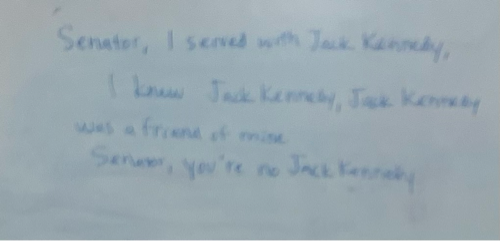 Senator, I served with Jack Kennedy,
I knew Jack Kennedy, Jack Kennedy
was a friend of mine
Senator, you're no Jack Kennedy